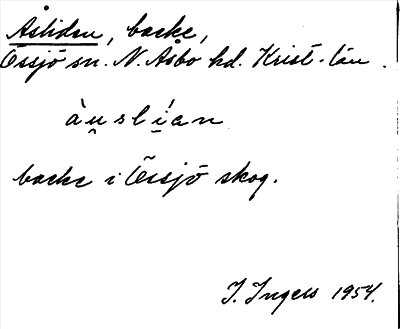 Åsliden, backe,
Össjö sn. N. Åsbo hd. Krist. län.
àu̯slí̯an
backe i Össjö skog.
I. Ingers 1954.